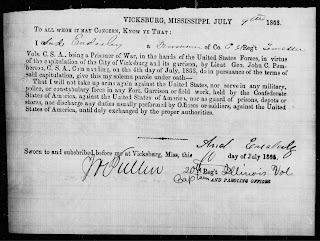 VICKSBURG, MISSISSIPPI, JULY 9th 1863.
TO ALL WHOM IT MAY CONCERN, KNOW YE THAT:
I And a of Co. Reg't
Vols. C. S. A., being a Prisoner of War, in the hands of the United States Forces, in virtue
of the capitulation of the City of Vicksburg and its garrison, by Lieut. Gen. John C. Pem-
berton, C. S. A., Commanding, on the 4th day of July, 1863, do in pursuance of the terms of
said capitulation, give this my solemn parole under oath—
That I will not take up arms again against the United States, nor serve in any military,
police, or constabulary force in any Fort, Garrison or field work, held by the Confederate
States of America, against the United States of America, nor as guard of prisons, depots or
stores, nor discharge any duties usually performed by Officers or soldiers, against the United
States of America, until duly exchanged by the proper authorities.
And
Sworn to and subscribed before me at Vicksburg, Miss., this day of July 1863.
20th Reg't Illinois Vol
Captain AND PAROLING OFFICER